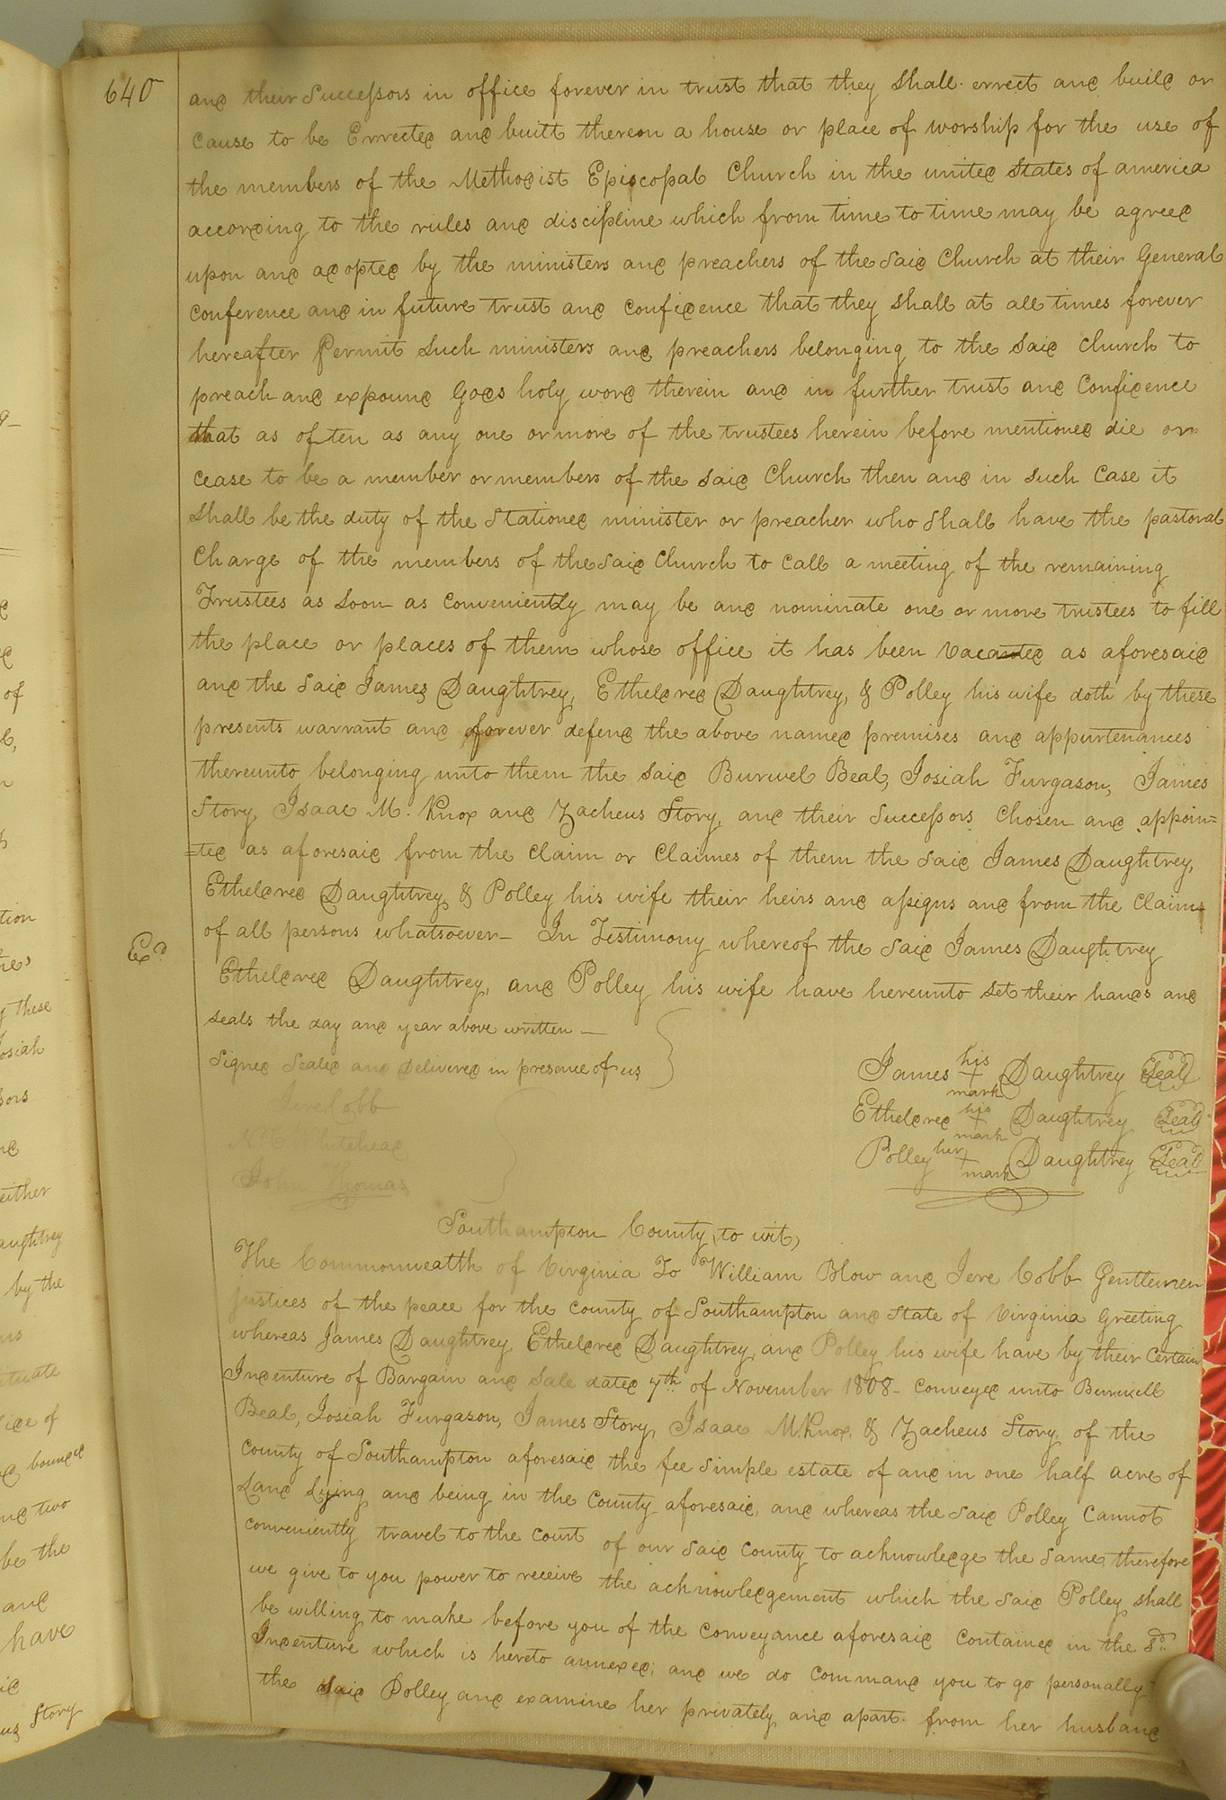 640
and their Successors in office forever in trust that they shall errect and build or
cause to be Errected and built thereon a house or place of worship for the use of
the members of the Methodist Episcopal Church in the united States of america
according to the rules and discipline which from time to time may be agreed
upon and adopted by the ministers and preachers of the Said Church at their General
Conference and in future trust and Confidence that they shall at all times forever
hereafter permit such ministers and preachers belonging to the Said Church to
preach and expound Gods holy word therein and in further trust and Confidence
that as often as any one or more of the trustees herein before mentioned die or
cease to be a member or members of the said Church then and in such Case it
shall be the duty of the Stationed minister or preacher who shall have the pastoral
Charge of the members of the Said Church to Call a meeting of the remaining
Trustees as soon as Conveniently may be and nominate one or more trustees to fill
the place or places of them whose office it has been Vacated as aforesaid
and the Said James Daughtrey, Etheldred Daughtrey, & Polley his wife doth by these
presents warrant and forever defend the above named premises and appurtenances
thereunto belonging unto them the said Burwel Beal, Josiah Furgason, James
Story, Isaac M. Knox and Zacheus Story, and their Successors Chosen and appoin=
=ted as aforesaid from the Claim or Claimes of them the said James Daughtrey,
Etheldred Daughtrey & Polley his wife their heirs and assigns and from the Claims
of all persons whatsoever— In Testimony whereof the said James Daughtrey
Exd
Etheldred Daughtrey, and Polley his wife have hereunto set their hands and
seals the day and year above written —
Signed Sealed and Delivered in presence of us
James his + mark Daughtrey Seal
Jere Cobb
Etheldred his + mark Daughtrey Seal
Whitehead
Polley her + mark Daughtrey Seal
Thomas
Southampton County, to wit,
The Commonwealth of Virginia To William Blow and Jere Cobb Gentlemen
justices of the peace for the County of Southampton and state of Virginia Greeting
whereas James Daughtrey Etheldred Daughtrey, and Polley his wife have by their Certain
Indenture of Bargain and Sale dated 7th of November 1808— Conveyed unto Burwell
Beal, Josiah Furgason, James Story, Isaac M. Knox, & Zacheus Story, of the
County of Southampton aforesaid the fee simple estate of and in one half acre of
Land Lying and being in the County aforesaid, and whereas the said Polley Cannot
conveniently travel to the Court of our said County to acknowledge the same, therefore
we give to you power to receive the acknowledgement which the said Polley shall
be willing to make before you of the Conveyance aforesaid Contained in the sd
Indenture which is hereto annexed; and we do Command you to go personally
the said Polley and examine her privately and apart from her husband